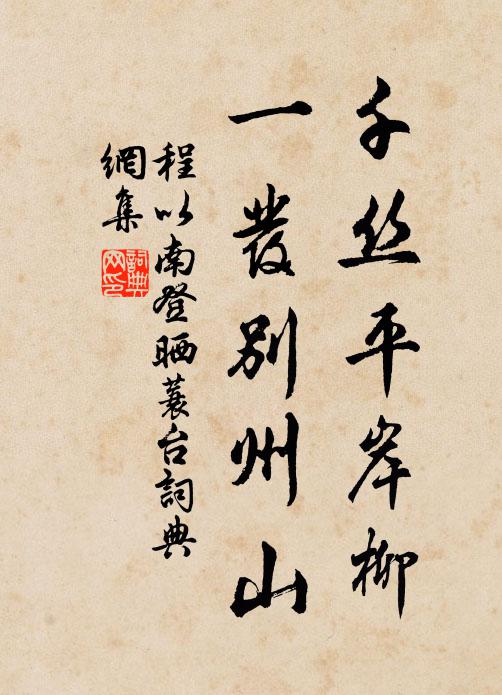 千丝平岸柳
一發别州山
程以南登晒蓑台詞典
網集
詞典
网印